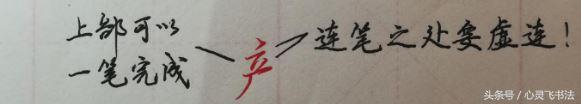 上部可以
一笔完成
产
连笔之处要虚连!
头条号/心灵飞书法